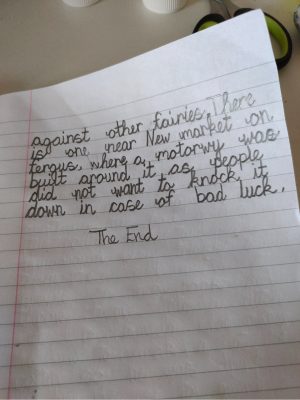 against other fairies. There
is one near New market on
fergus, where a motorwy was
built around it as people
did not want to knock it
down in case of bad luck.
The End